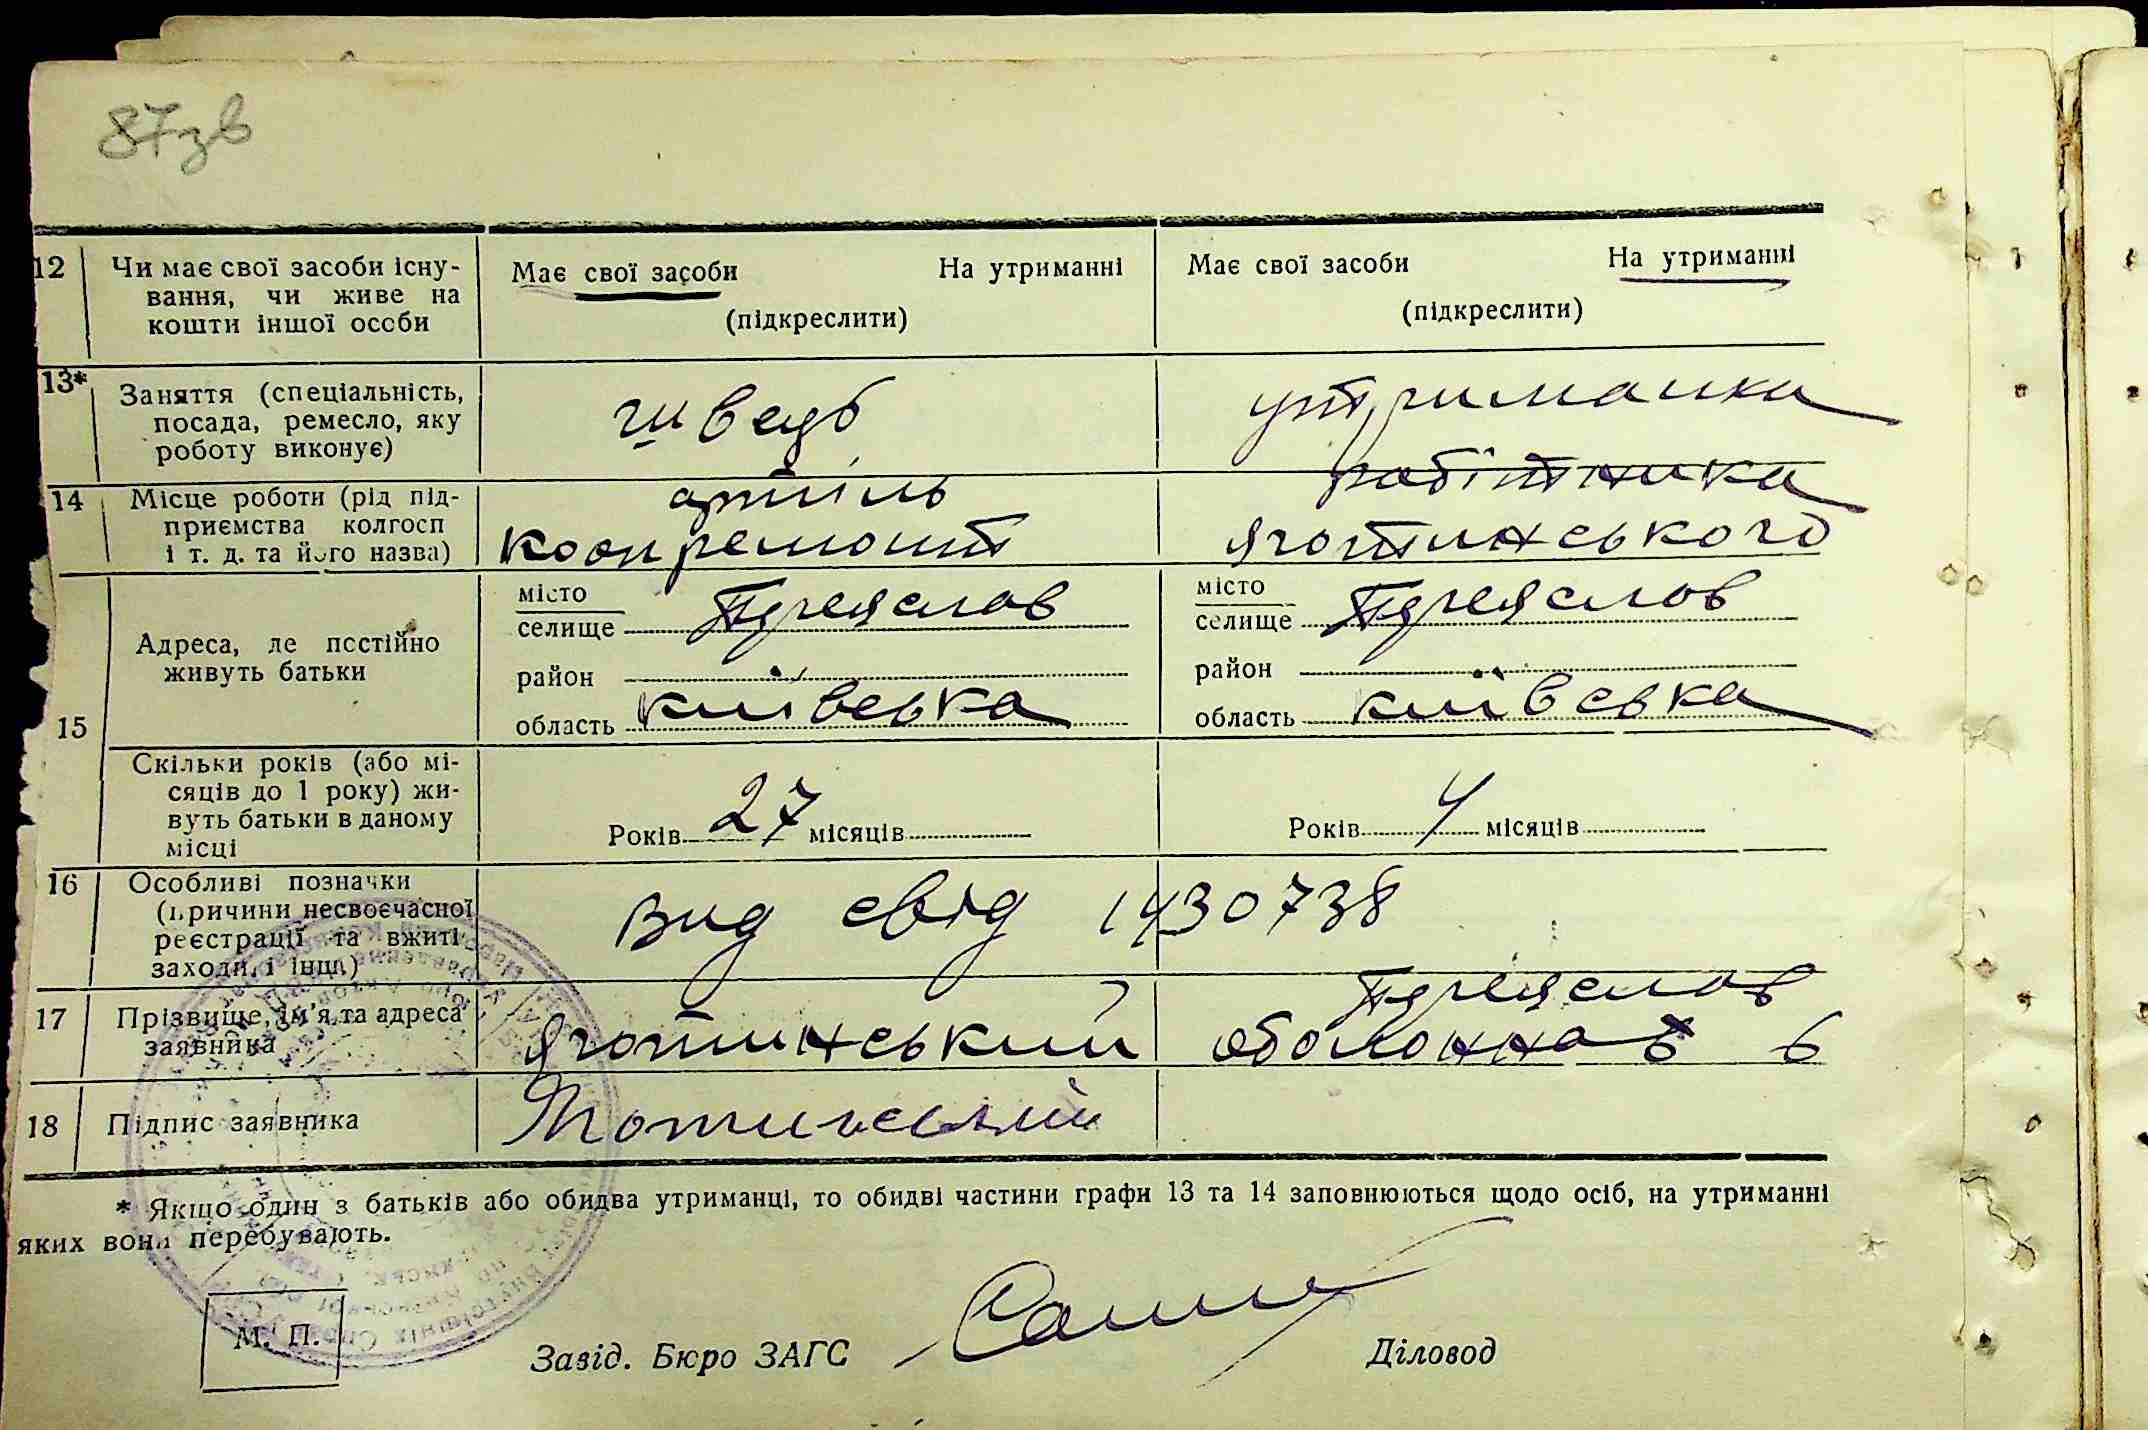 87зв
12 Чи має свої засоби існу-
вання, чи живе на
кошти іншої особи
Має свої засоби На утриманні
(підкреслити)
Має свої засоби На утриманні
(підкреслити)
13* Заняття (спеціальність,
посада, ремесло, яку
роботу виконує)
швець
утриманка
14 Місце роботи (рід під-
приємства колгосп
і т. д. та його назва)
артіль
коопремонт
робітника
Яготинського
15
Адреса, де постійно
живуть батьки
місто
селище Переяслов
район
область київська
місто
селище Переяслов
район
область київська
Скільки років (або мі-
сяців до 1 року) жи-
вуть батьки в даному
місці
Років 27 місяців
Років 4 місяців
16 Особливі позначки
(причини несвоєчасної
реєстрації та вжиті
заходи, і інш.)
Вид свід 1430738
17 Прізвище, ім'я та адреса
заявника
Яготинський
Переяслов
оболонна 6
18 Підпис заявника
Яготинський
* Якщо один з батьків або обидва утриманці, то обидві частини графи 13 та 14 заповнюються щодо осіб, на утриманні
яких вони перебувають.
М. П.
Завід. Бюро ЗАГС
Діловод